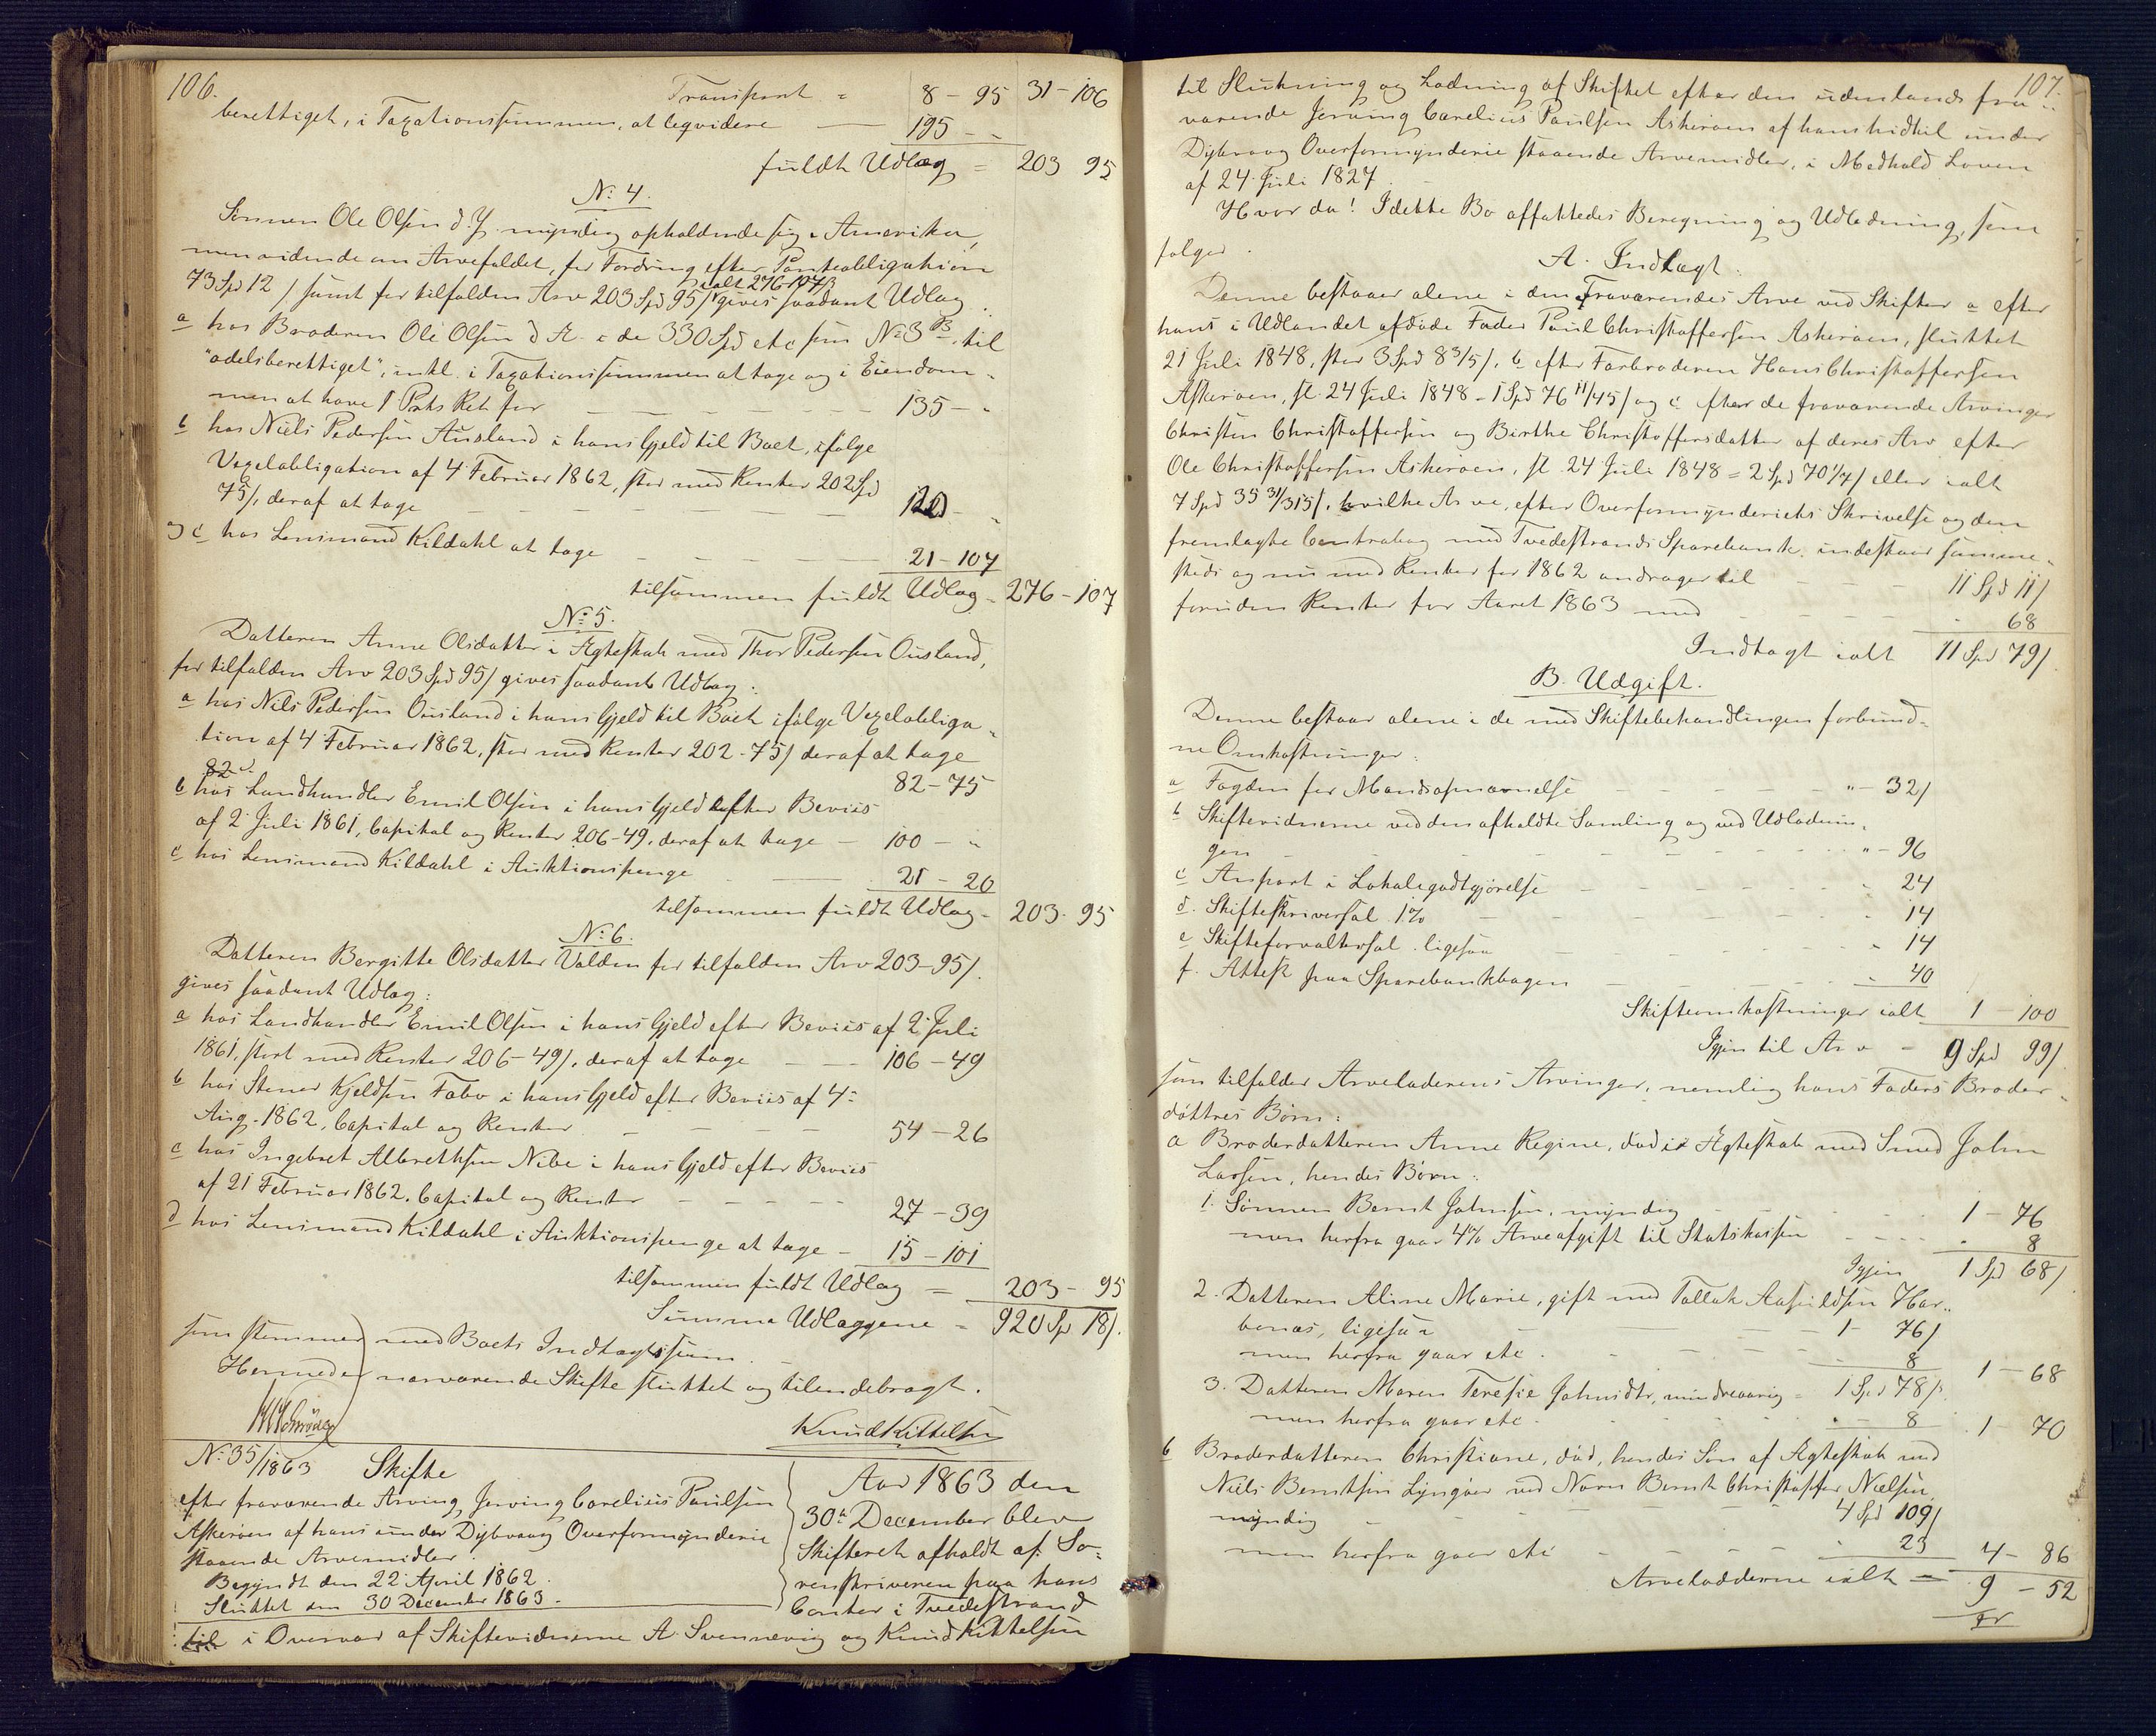 106.
Transport = 8 - 95 31 - 106
berettiget, i Taxationssummen, at leqvidere — 195 - -
fuldt Udlæg = 203 95
No 4.
Sønnen Ole Olsen d. Y. myndig opholdende sig i Amerika,
men vidende om Arvefaldet, for Fordring efter Panteobligation
73 Spd 12 / samt for tilfalden Arv 203 Spd 95 / ialt 276-107 / gives saadant Udlæg:
a hos Broderen Ole Olsen d Æ. i de 330 Spd etc som No 3 B. til
"odelsberettiget", inkl. i Taxationssummen at tage og i Eiendom-
men at have 1 Prts Ret for — 135 - "
b hos Niels Pedersen Ausland i hans Gjeld til Boet, ifølge
Vexelobligation af 4 Februar 1862, stor med Renter 202 Spd
75 /, deraf at tage — 120 - "
og c hos Lensmand Kildahl at tage — 21 - 107
tilsammen fuldt Udlæg = 276 - 107
No 5.
Datteren Anne Olsdatter i Ægteskab med Thor Pedersen Ousland,
for tilfalden Arv 203 Spd 95 / gives saadant Udlæg:
a hos Nils Pedersen Ousland i hans Gjeld til Boet ifølge Vexelobliga-
tion af 4 Februar 1862, stor med Renter 202 - 75 / deraf at tage
82 82 - 75
b hos Landhandler Emil Olsen i hans Gjeld efter Beviis
af 2 Juli 1861, Capital og Renter 206 - 49. deraf at tage — 100 - "
c hos Lensmand Kildahl i Auktionspenge — 21 - 20
tilsammen fuldt Udlæg - 203 - 95
No 6.
Datteren Bergitte Olsdatter Valden for tilfalden Arv 203 - 95 /.
gives saadant Udlæg:
a hos Landhandler Emil Olsen i hans Gjeld efter Beviis af 2 Juli
1861, stort med Renter 206 - 49 /. deraf at tage — 106 - 49
b hos Stener Kjeldsen Fabo i hans Gjeld efter Beviis af 4
Aug. 1862, Capital og Renter — 54 - 26
c hos Ingebret Albrethsen Nibe i hans Gjeld efter Beviis
af 21 Februar 1862. Capital og Renter — 27 - 39
d hos Lensmand Kildahl i Auktionspenge at tage — 15 - 101
tilsammen fuldt Udlæg = 203 - 95
Summa Udlæggene = 920 Sp 18 /.
som stemmer med Boets Indtægtssum.
Hermed nærværende Skifte sluttet og tilendebragt.
Knud Kittelsen
No 35/1863 Skifte
efter fraværende Arving Jørving Carelius Paulsen
Askerøen af hans under Dybvaag Overformynderie
staaende Arvemidler.
Begyndt den 22 April 1862.
Sluttet den 30 December 1863.
Aar 1863 den
30te December blev
Skifteret afholdt af So-
renskriveren paa hans
Contor i Tvedestrand
til i Overvær af Skiftevidnerne A. Svennevig og Knud Kittelsen
107.
til Slutning og Lodning af Skiftet efter den udenlands fra-
værende Jørving Carelius Paulsen Askerøen af hans hidtil under
Dybvaag Overformynderie staaende Arvemidler, i Medhold Loven
af 24 Juli 1827.
Hvor da! I dette Bo affattedes Beregning og Udlodning, som
følger.
A. Indtægt.
Denne bestaaer alene i den Fraværendes Arve ved Skifter a efter
hans i Udlandet afdøde Fader Paul Christoffersen Askerøen, sluttet
21 Juli 1848, stor 3 Spd 8 3/5 /, b efter Farbroderen Hans Christoffersen
Askerøen, sl. 24 Juli 1848 - 1 Spd 76 11/45 / og c efter de fraværende Arvinger
Christen Christoffersen og Birthe Christoffersdatter af deres Arv efter
Ole Christoffersen Askerøen, sl. 24 Juli 1848 = 2 Spd 70 1/7 / eller ialt
7 Spd 35 31/315 /. hvilke Arve, efter Overformynderiets Skrivelse og den
fremlagte Contrabog med Tvedestrands Sparebank indestaar samme-
steds og nu med Renter for 1862 andrager til — 11 Spd 11 /
foruden Renter for Aaret 1863 med — 68
Indtægt ialt 11 Spd 79 /.
B. Udgift.
Denne bestaar alene i de med Skiftebehandlingen forbund-
ne Omkostninger:
a Fogden for Mandsopnævnelse — " - 32 /
b Skiftevidnerne ved den afholdte Samling og ved Udlodnin-
gen — " - 96
c Anpart i Lokalegodtgjørelse — 24
d. Skifteskriversal 1% — 14
e Skifteforvaltersal ligesaa — 14
f. Attest paa Sparebankbogen — 40
Skifteomkostninger ialt 1 - 100
Igjen til Arv - 9 Spd 99 /.
som tilfalder Arveladerens Arvinger, nemlig hans Faders Broder-
døttres Børn:
a Broderdatteren Anne Regine, død i Ægteskab med Smed John
Larsen, hendes Børn:
1. Sønnen Bernt Johnsen, myndig — 1 - 76
men herfra gaar 4% Arveafgift til Statskassen — 8
Igjen 1 Spd 68 /
2. Datteren Aline Marie, gift med Tallak Aasuldsen Har-
benæs, ligesaa — 1 - 76 /
men herfra gaar etc. — 8 1 - 68
3. Datteren Maren Teresie Johnsdtr, mindreaarig = 1 Spd 78 /.
men herfra gaar etc. — 8 1 - 70
b Broderdatteren Christiane, død, hendes Søn af Ægteskab med
Niels Berntsen Lyngøer ved Navn Bernt Christoffer Nielsen,
myndig — 4 Spd 109 /
men herfra gaar etc — 23 4 - 86
Arvelodderne ialt = 9 - 52